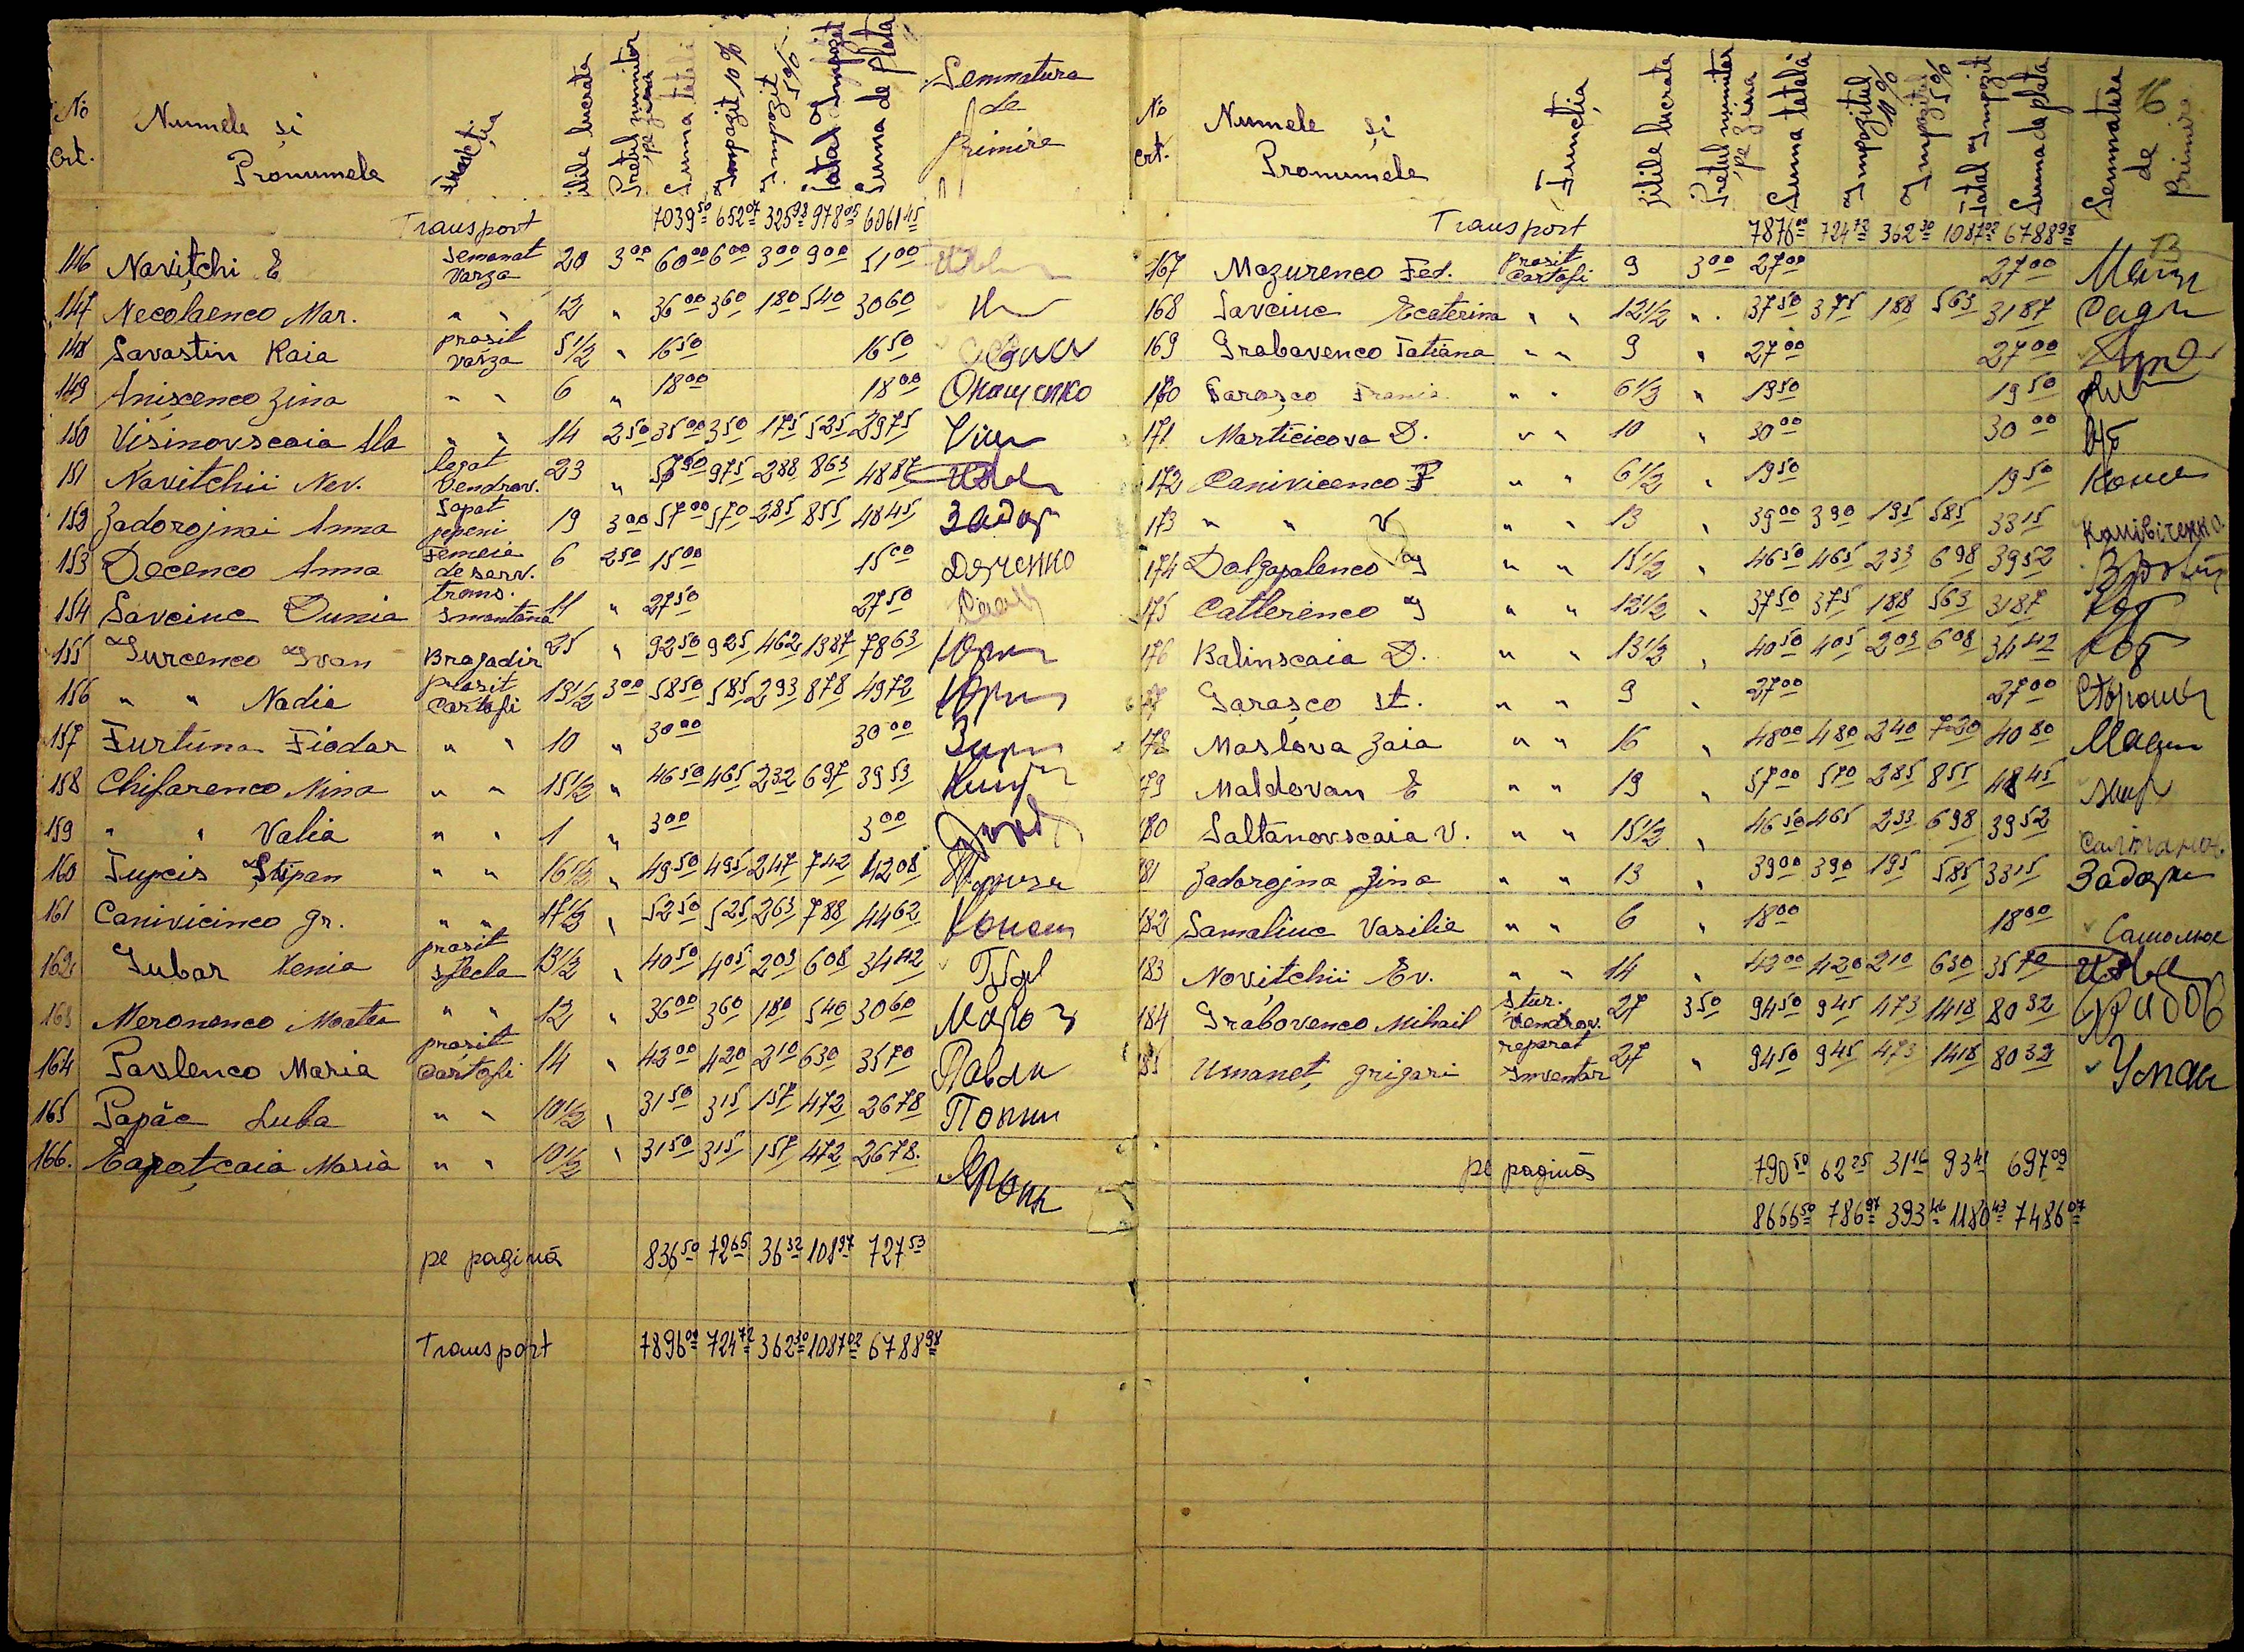 No Crt. Numele și Pronumele Funcția Zilele lucrate Prețul numitor pe zi Suma totală Impozit 10% Impozit 5% Total Impozit Suma de plata Semnatura de Primire
Transport 7039 50 652 07 325 98 978 05 6061 45
146 Navițchi E semanat varza 20 3 00 60 00 6 00 3 00 9 00 51 00
147 Necolaenco Mar. " " 12 " 36 00 3 60 1 80 5 40 30 60
148 Savastin Raia prasit varza 5 1/2 " 16 50 16 50
149 Anișcenco Zina " " 6 " 18 00 18 00 Онащенко
150 Vișinovscaia Ala " " 14 2 50 35 00 3 50 1 75 5 25 29 75
151 Navitchii Nev. legat Dendrov. 23 " 57 50 9 75 2 88 8 63 48 87
152 Zadorojnai Anna Sapat jepeni 19 3 00 57 00 5 70 2 85 8 55 48 45 Задор
153 Decenco Anna Femeie de serv. 6 2 50 15 00 15 00 Дезченко
154 Savciuc Dunia trans. smantână 11 " 27 50 27 50
155 Iurcenco Ivan Bragadir 25 " 92 50 9 25 4 62 13 87 78 63
156 " " Nadia prasit Cartofi 13 1/2 3 00 58 50 5 85 2 93 8 78 49 72
157 Furtuna Fiodar " " 10 " 30 00 30 00
158 Chifarenco Nina " " 15 1/2 " 46 50 4 65 2 32 6 97 39 53
159 " " Valia " " 1 " 3 00 3 00
160 Țupcis Ștepan " " 16 1/2 " 49 50 4 95 2 47 7 42 42 08
161 Canivicinco Gr. " " 17 1/2 " 52 50 5 25 2 63 7 88 44 62
162 Gubar Xenia prasit sfecla 13 1/2 " 40 50 4 05 2 03 6 08 34 42
163 Meronenco Moatea " " 12 " 36 00 3 60 1 80 5 40 30 60 Мороз
164 Pavlenco Maria prașit Cartofi 14 " 42 00 4 20 2 10 6 30 35 70 Павли
165 Papâc Luba " " 10 1/2 " 31 50 3 15 1 57 4 72 26 78
166. Eapațcaia Maria " " 10 1/2 " 31 50 3 15 1 57 4 72 26 78.
pe pagină 836 50 72 65 36 32 108 97 727 53
Transport 7896 00 724 72 362 30 1087 02 6788 98
16
No crt. Numele și Pronumele Funcția Zilele lucrate Prețul numitor pe ziua Suma totală Impozitul 10% Impozitul 5% Total Impozit Suma de plata Semnatura de Primire
Transport 7876 00 724 72 362 30 1087 02 6788 98
13
167 Mazurenco Fed. prasit Cartofi 9 3 00 27 00 27 00
168 Savciuc Ecaterina " " 12 1/2 " 37 50 3 75 1 88 5 63 31 87
169 Grabavenco Tatiana " " 9 " 27 00 27 00
170 Garașco " " 6 1/2 " 19 50 19 50
171 Marticicova D. " " 10 " 30 00 30 00
172 Canivicenco F " " 6 1/2 " 19 50 19 50
173 " " V " " 13 " 39 00 3 90 1 95 5 85 33 15 Канівіченко
174 Dolgapalenco I " " 15 1/2 " 46 50 4 65 2 33 6 98 39 52
175 Catlerenco I " " 12 1/2 " 37 50 3 75 1 88 5 63 31 87
176 Balinscaia D. " " 13 1/2 " 40 50 4 05 2 03 6 08 34 42
177 Garașco St. " " 9 " 27 00 27 00
178 Maslova Zaia " " 16 " 48 00 4 80 2 40 7 20 40 80
179 Maldovan E " " 19 " 57 00 5 70 2 85 8 55 48 45
180 Saltanovscaia V. " " 15 1/2 " 46 50 4 65 2 33 6 98 39 52
181 Zadorojna Zina " " 13 " 39 00 3 90 1 95 5 85 33 15
182 Samaliuc Vasilie " " 6 " 18 00 18 00
183 Novițchii Ev. " " 14 " 42 00 4 20 2 10 6 30 35 70
184 Grabovenco Mihail Stur. Dendrov. 27 3 50 94 50 9 45 4 73 14 18 80 32
185 Umaneț Grigari reparat Inventar 27 " 94 50 9 45 4 73 14 18 80 32
pe pagină 790 50 62 25 31 16 93 41 697 09
8666 50 786 97 393 46 1180 43 7486 07